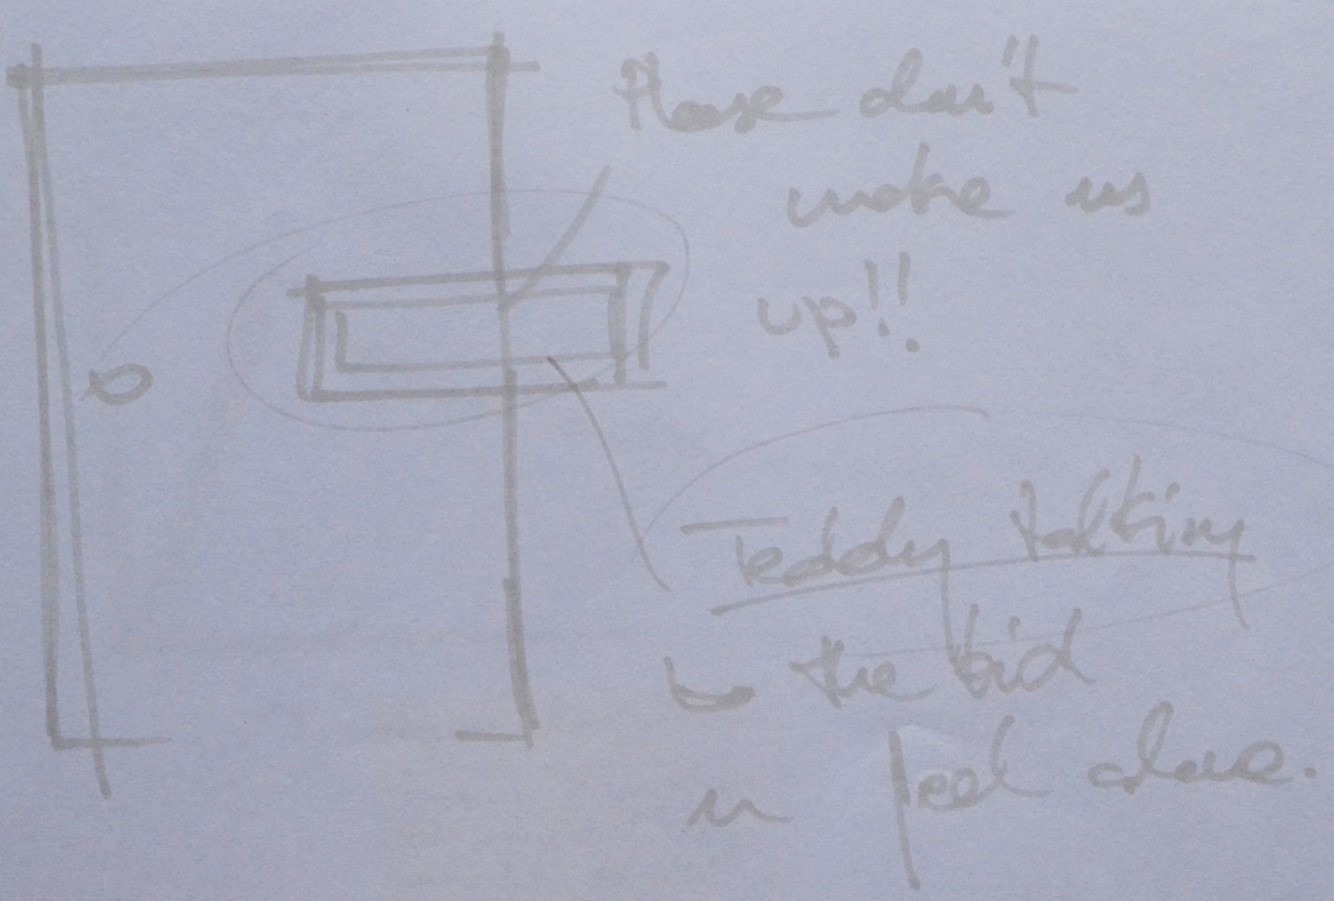 Please don't
make us
up!!
Teddy talking
to the kid
feel alone.